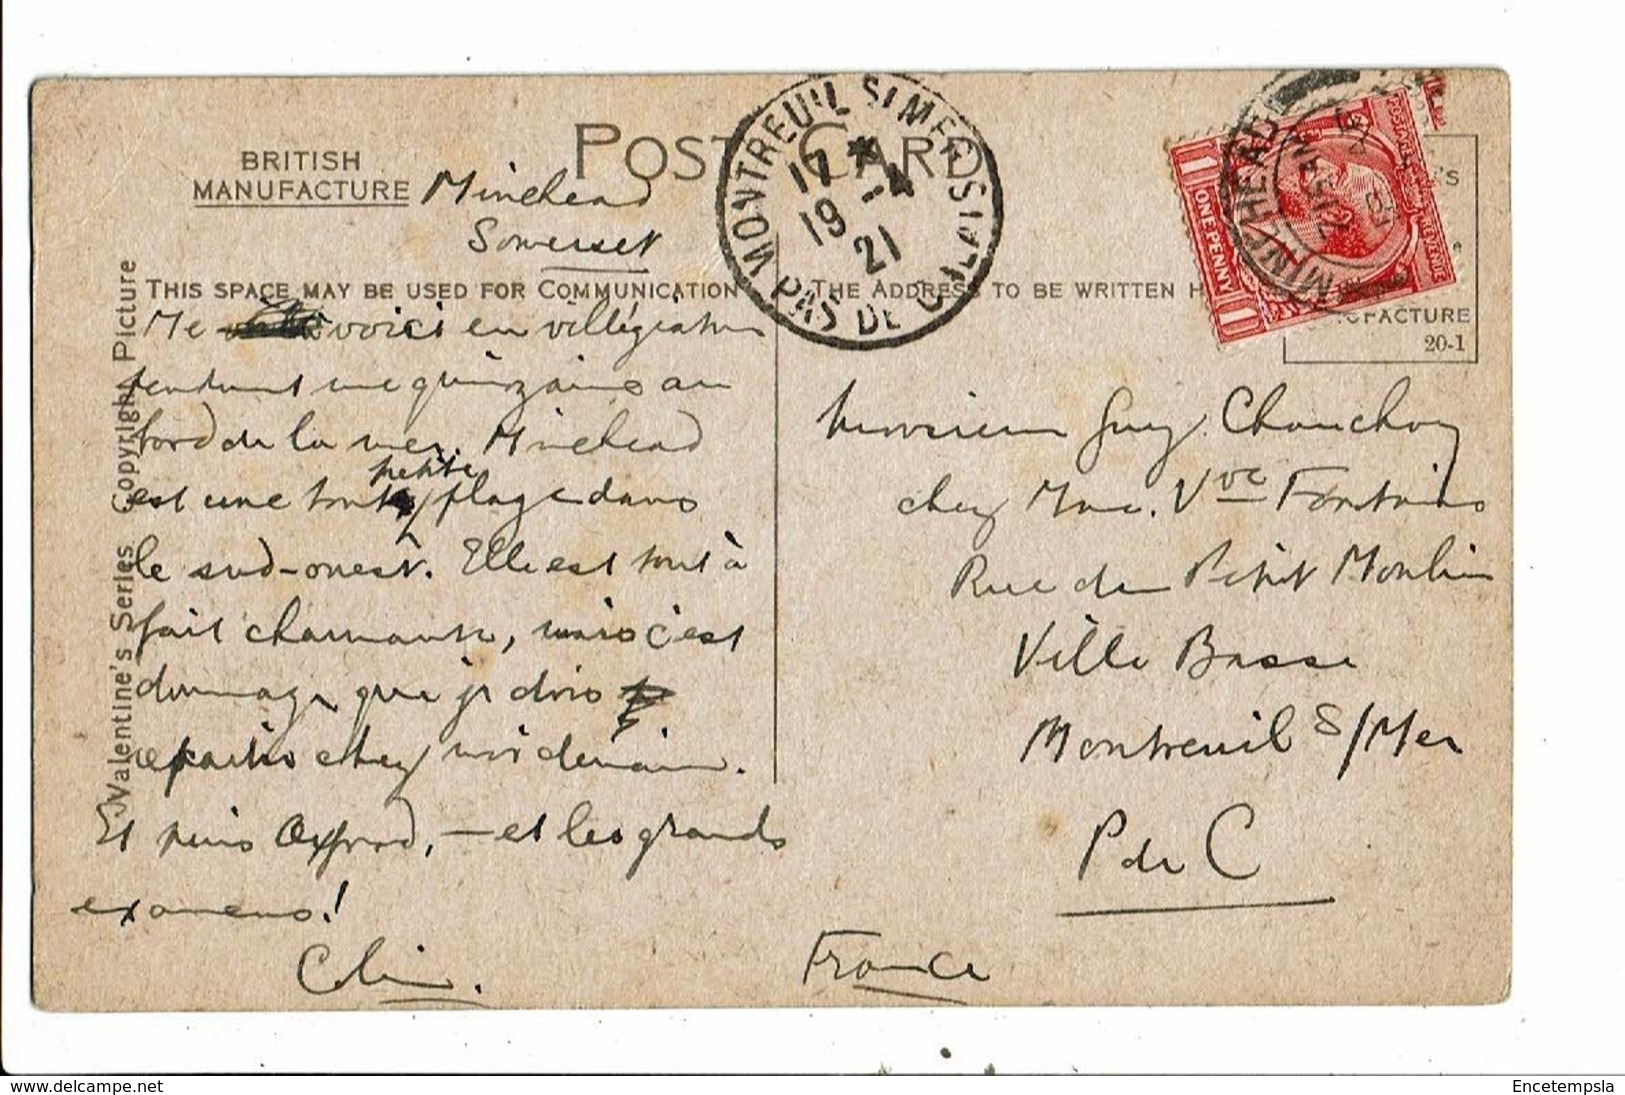 POST CARD
BRITISH
MANUFACTURE
Minehead
Somerset
THIS SPACE MAY BE USED FOR COMMUNICATION
THE ADDRESS TO BE WRITTEN H
Me voici en villégiature
pendant une quinzaine au
bord de la mer. Minehead
est une toute petite plage dans
le sud-ouest. Elle est tout à
fait charmante, mais c'est
dommage que je dois
repartir chez moi demain.
Et puis Oxford, — et les grands
examens!
Colin.
Valentine's Series Copyright Picture
Monsieur Guy Chauchoy
chez Mme. Vve Fontaine
Rue du Petit Moulin
Ville Basse
Montreuil S/Mer
P de C
France
MONTREUIL S! MER
PAS DE CALAIS
17 * 
19 -4
21
MINEHEAD
ONE PENNY
POSTAGE
REVENUE
'S
FACTURE
20-1
delcampe.net
Encetempsla